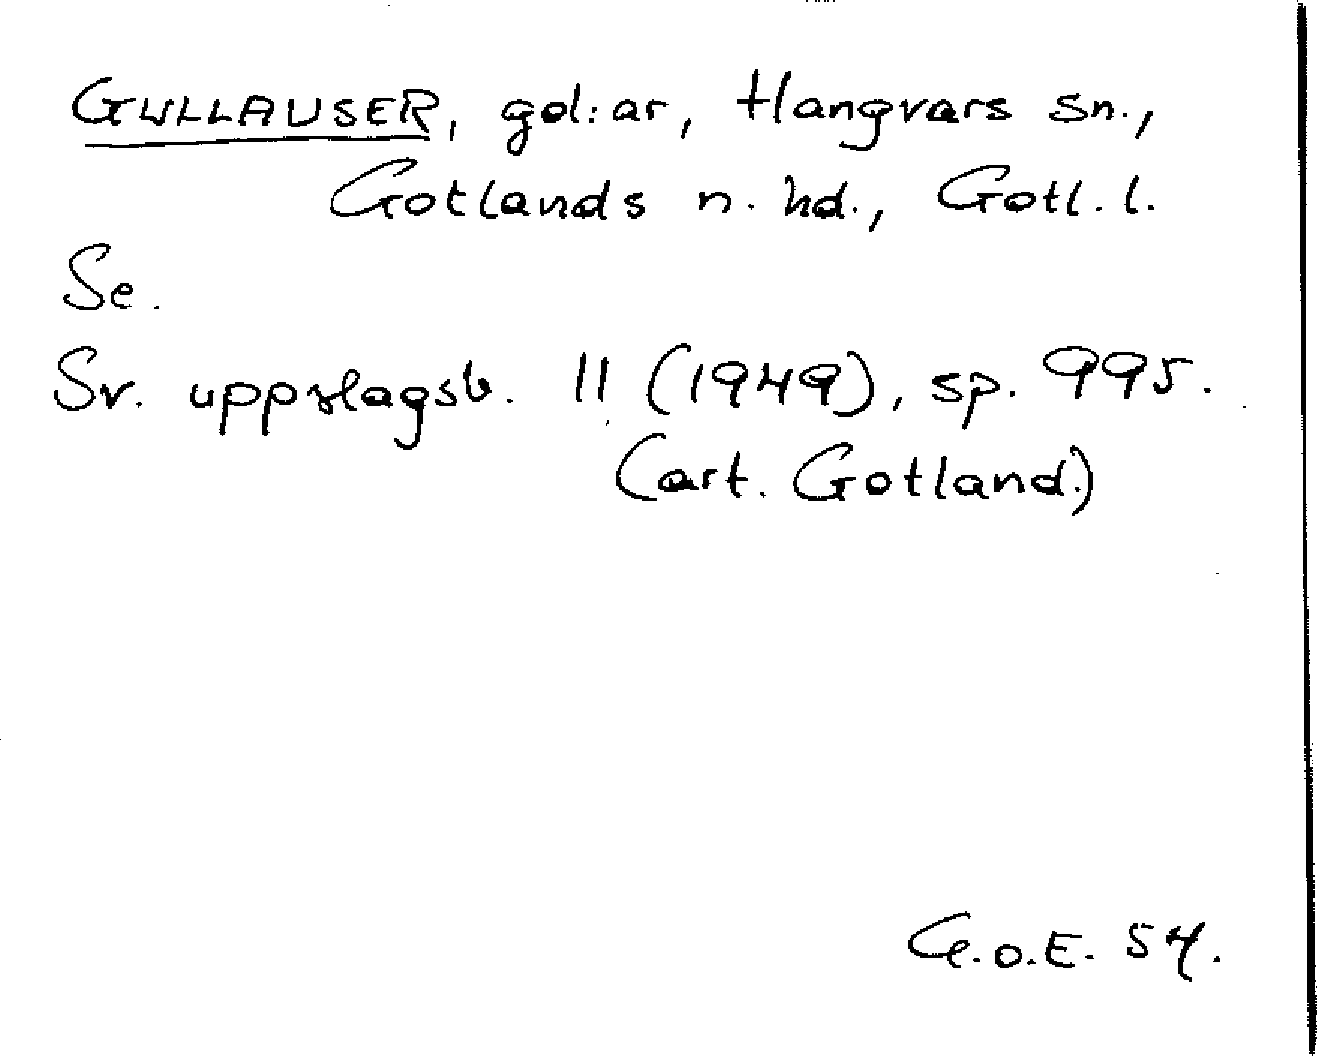 GULLAUSER, gd:ar, Hangvars sn.,
Gotlands n. hd., Gotl. l.
Se.
Sv. uppslagsb. 11 (1949), sp. 995.
(art. Gotland.)
G.o.E. 54.